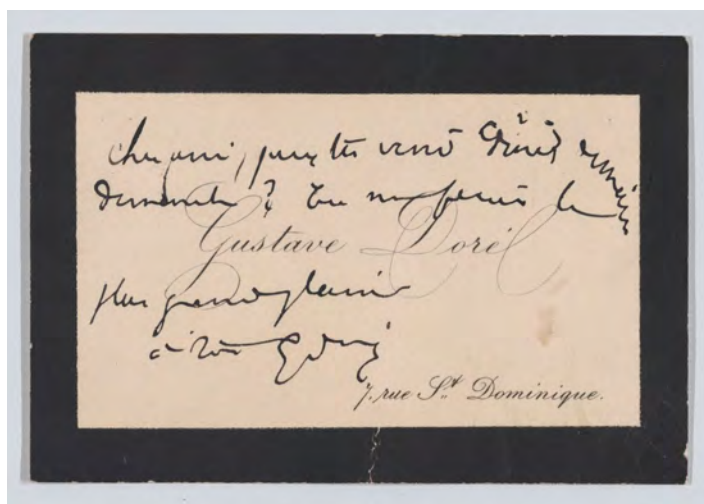 cher ami, peux tu venir dîner demain
dimanche ? Tu me ferais le
Gustave Doré
plus grand plaisir
à toi G Doré
7, rue St Dominique.